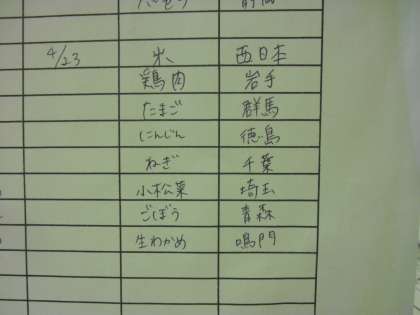 4/23 米 西日本
鶏肉 岩手
たまご 群馬
にんじん 徳島
ねぎ 千葉
小松菜 埼玉
ごぼう 青森
生わかめ 鳴門